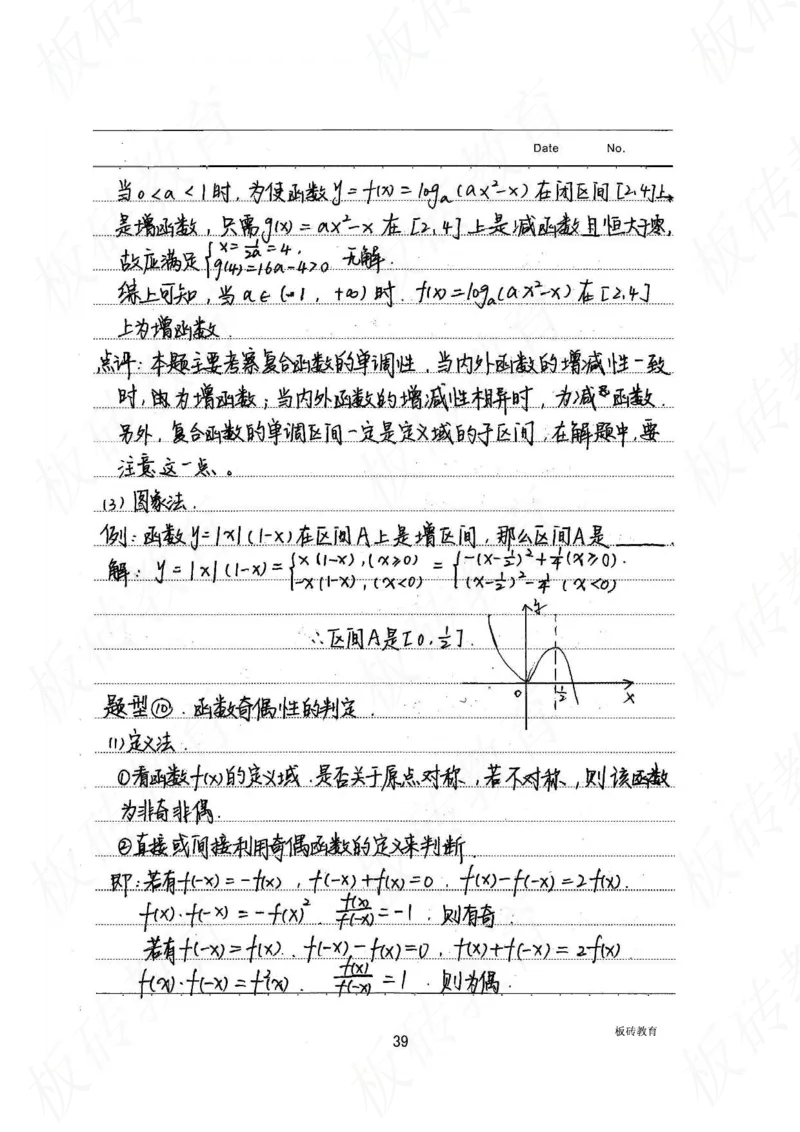 Date No.
当0<a<1时,为使函数y=f(x)=logₐ(ax²-x)在闭区间[2,4]上
是增函数,只需g(x)=ax²-x在[2,4]上是减函数且恒大于零,
故应满足{x=1/2a=4, g(4)=16a-4>0 无解.
综上可知,当a∈(1,+∞)时.f(x)=logₐ(ax²-x)在[2,4]
上为增函数.
点评:本题主要考察复合函数的单调性,当内外函数的增减性一致
时,为增函数;当内外函数的增减性相异时,为减函数.
另外,复合函数的单调区间一定是定义域的子区间,在解题中,要
注意这一点。
(3)图象法.
例:函数y=|x|(1-x)在区间A上是增区间,那么区间A是____.
解:y=|x|(1-x)={x(1-x),(x≥0) -x(1-x),(x<0) ={-(x-1/2)²+1/4(x≥0). (x-1/2)²-1/4(x<0)
∴区间A是[0,1/2].
y 0 1/2 x
题型⑩.函数奇偶性的判定.
(1)定义法.
①看函数f(x)的定义域.是否关于原点对称,若不对称,则该函数
为非奇非偶.
②直接或间接利用奇偶函数的定义来判断.
即:若有f(-x)=-f(x),f(-x)+f(x)=0.f(x)-f(-x)=2f(x).
f(x)·f(-x)=-f(x)².f(x)/f(-x)=-1.则有奇.
若有f(-x)=f(x).f(-x)-f(x)=0,f(x)+f(-x)=2f(x)
f(x)·f(-x)=f²(x).f(x)/f(-x)=1.则为偶.
39
板砖教育